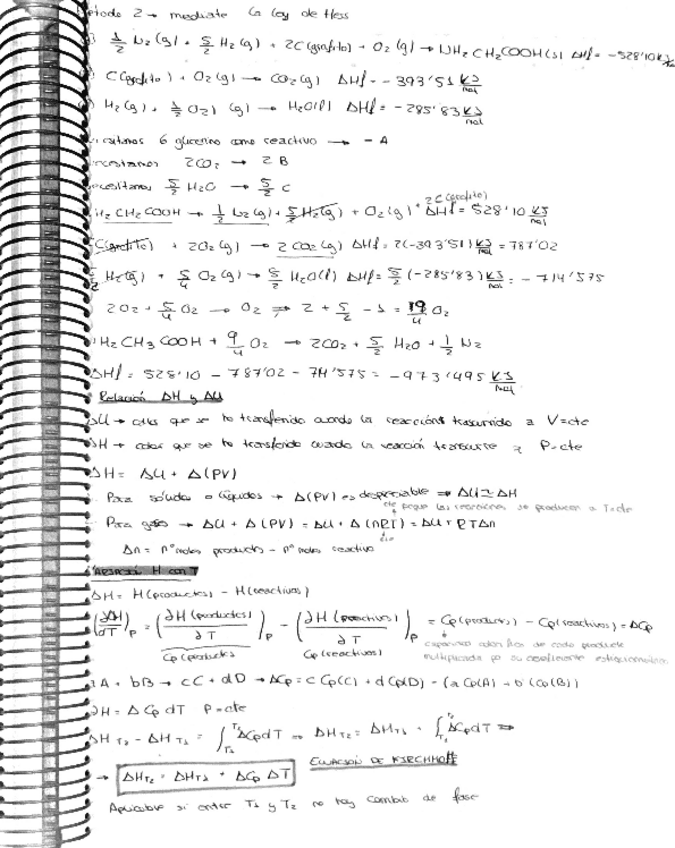 Método 2 → mediante la ley de Hess
) 1/2 N2(g) + 5/2 H2(g) + 2C(grafito) + O2(g) → NH2CH2COOH(s) ΔHf = -528'10 KJ/
) C(grafito) + O2(g) → CO2(g) ΔHf = -393'51 KJ/mol
) H2(g) + 1/2 O2) (g) → H2O(l) ΔHf = -285'83 KJ/mol
6 glicerino como reactivo → -A
2CO2 → 2B
5/2 H2O → 5/2 C
H2CH2COOH → 1/2 N2(g) + 5/2 H2(g) + O2(g) + 2C(grafito) ΔHf = 528'10 KJ/mol
C(grafito) + 2O2(g) → 2CO2(g) ΔHf = 2(-393'51) KJ/mol = 787'02
H2(g) + 5/4 O2(g) → 5/2 H2O(l) ΔHf = 5/2 (-285'83) KJ/mol = -714'575
2O2 + 5/4 O2 → O2 ⇒ 2 + 5/2 - 1 = 19/4 O2
H2CH3COOH + 9/4 O2 → 2CO2 + 5/2 H2O + 1/2 N2
ΔHf = 528'10 - 787'02 - 714'575 = -973'495 KJ/mol
Relación ΔH y ΔU
ΔU → calor que se ha transferido cuando la reacción trascurrido a V=cte
ΔH → calor que se ha transferido cuando la reacción transcurre a P=cte
ΔH = ΔU + Δ(PV)
Para sólidos o líquidos → Δ(PV) es despreciable ⇒ ΔU ≃ ΔH
porque las reacciones se producen a T=cte
Para gases → ΔU + Δ(PV) = ΔU + Δ(nRT) = ΔU + RTΔn
cte
Δn = nº moles producto - nº moles reactivo
H con T
ΔH = H(productos) - H(reactivos)
(∂ΔH/∂T)P = (∂H(productos)/∂T)P - (∂H(reactivos)/∂T)P = Cp(producto) - Cp(reactivos) = ΔCp
Cp(productos) Cp(reactivos) de cada producto
multiplicada por su coeficiente estequiométrico
aA + bB → cC + dD → ΔCp = c Cp(C) + d Cp(D) - (a Cp(A) + b (Cp(B))
∂H = ΔCp dT P=cte
ΔH T2 - ΔH T1 = ∫T1T2 ΔCp dT ⇒ ΔHT2 = ΔHT1 + ∫T1T2 ΔCp dT ⇒
→ ΔHT2 = ΔHT1 + ΔCp ΔT ECUACIÓN DE KIRCHHOFF
Aplicable si entre T1 y T2 no hay cambio de fase